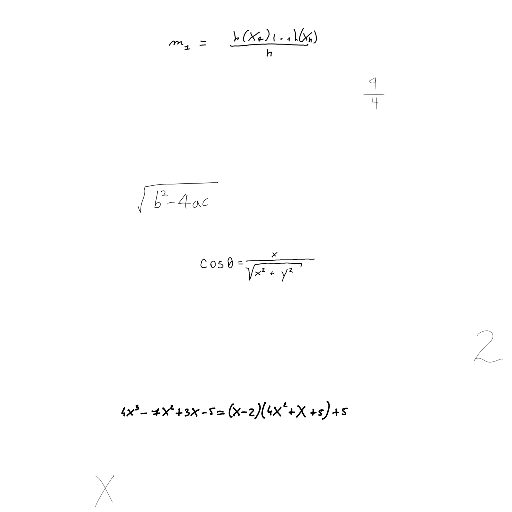 m_1 = \frac{h(x_1) + \ldots + h(x_n)}{n}
\frac{9}{4}
\sqrt{b^2 - 4ac}
\cos\theta = \frac{x}{\sqrt{x^2 + y^2}}
2
4x^3 - 7x^2 + 3x - 5 = (x-2)(4x^2 + x + 5) + 5
X